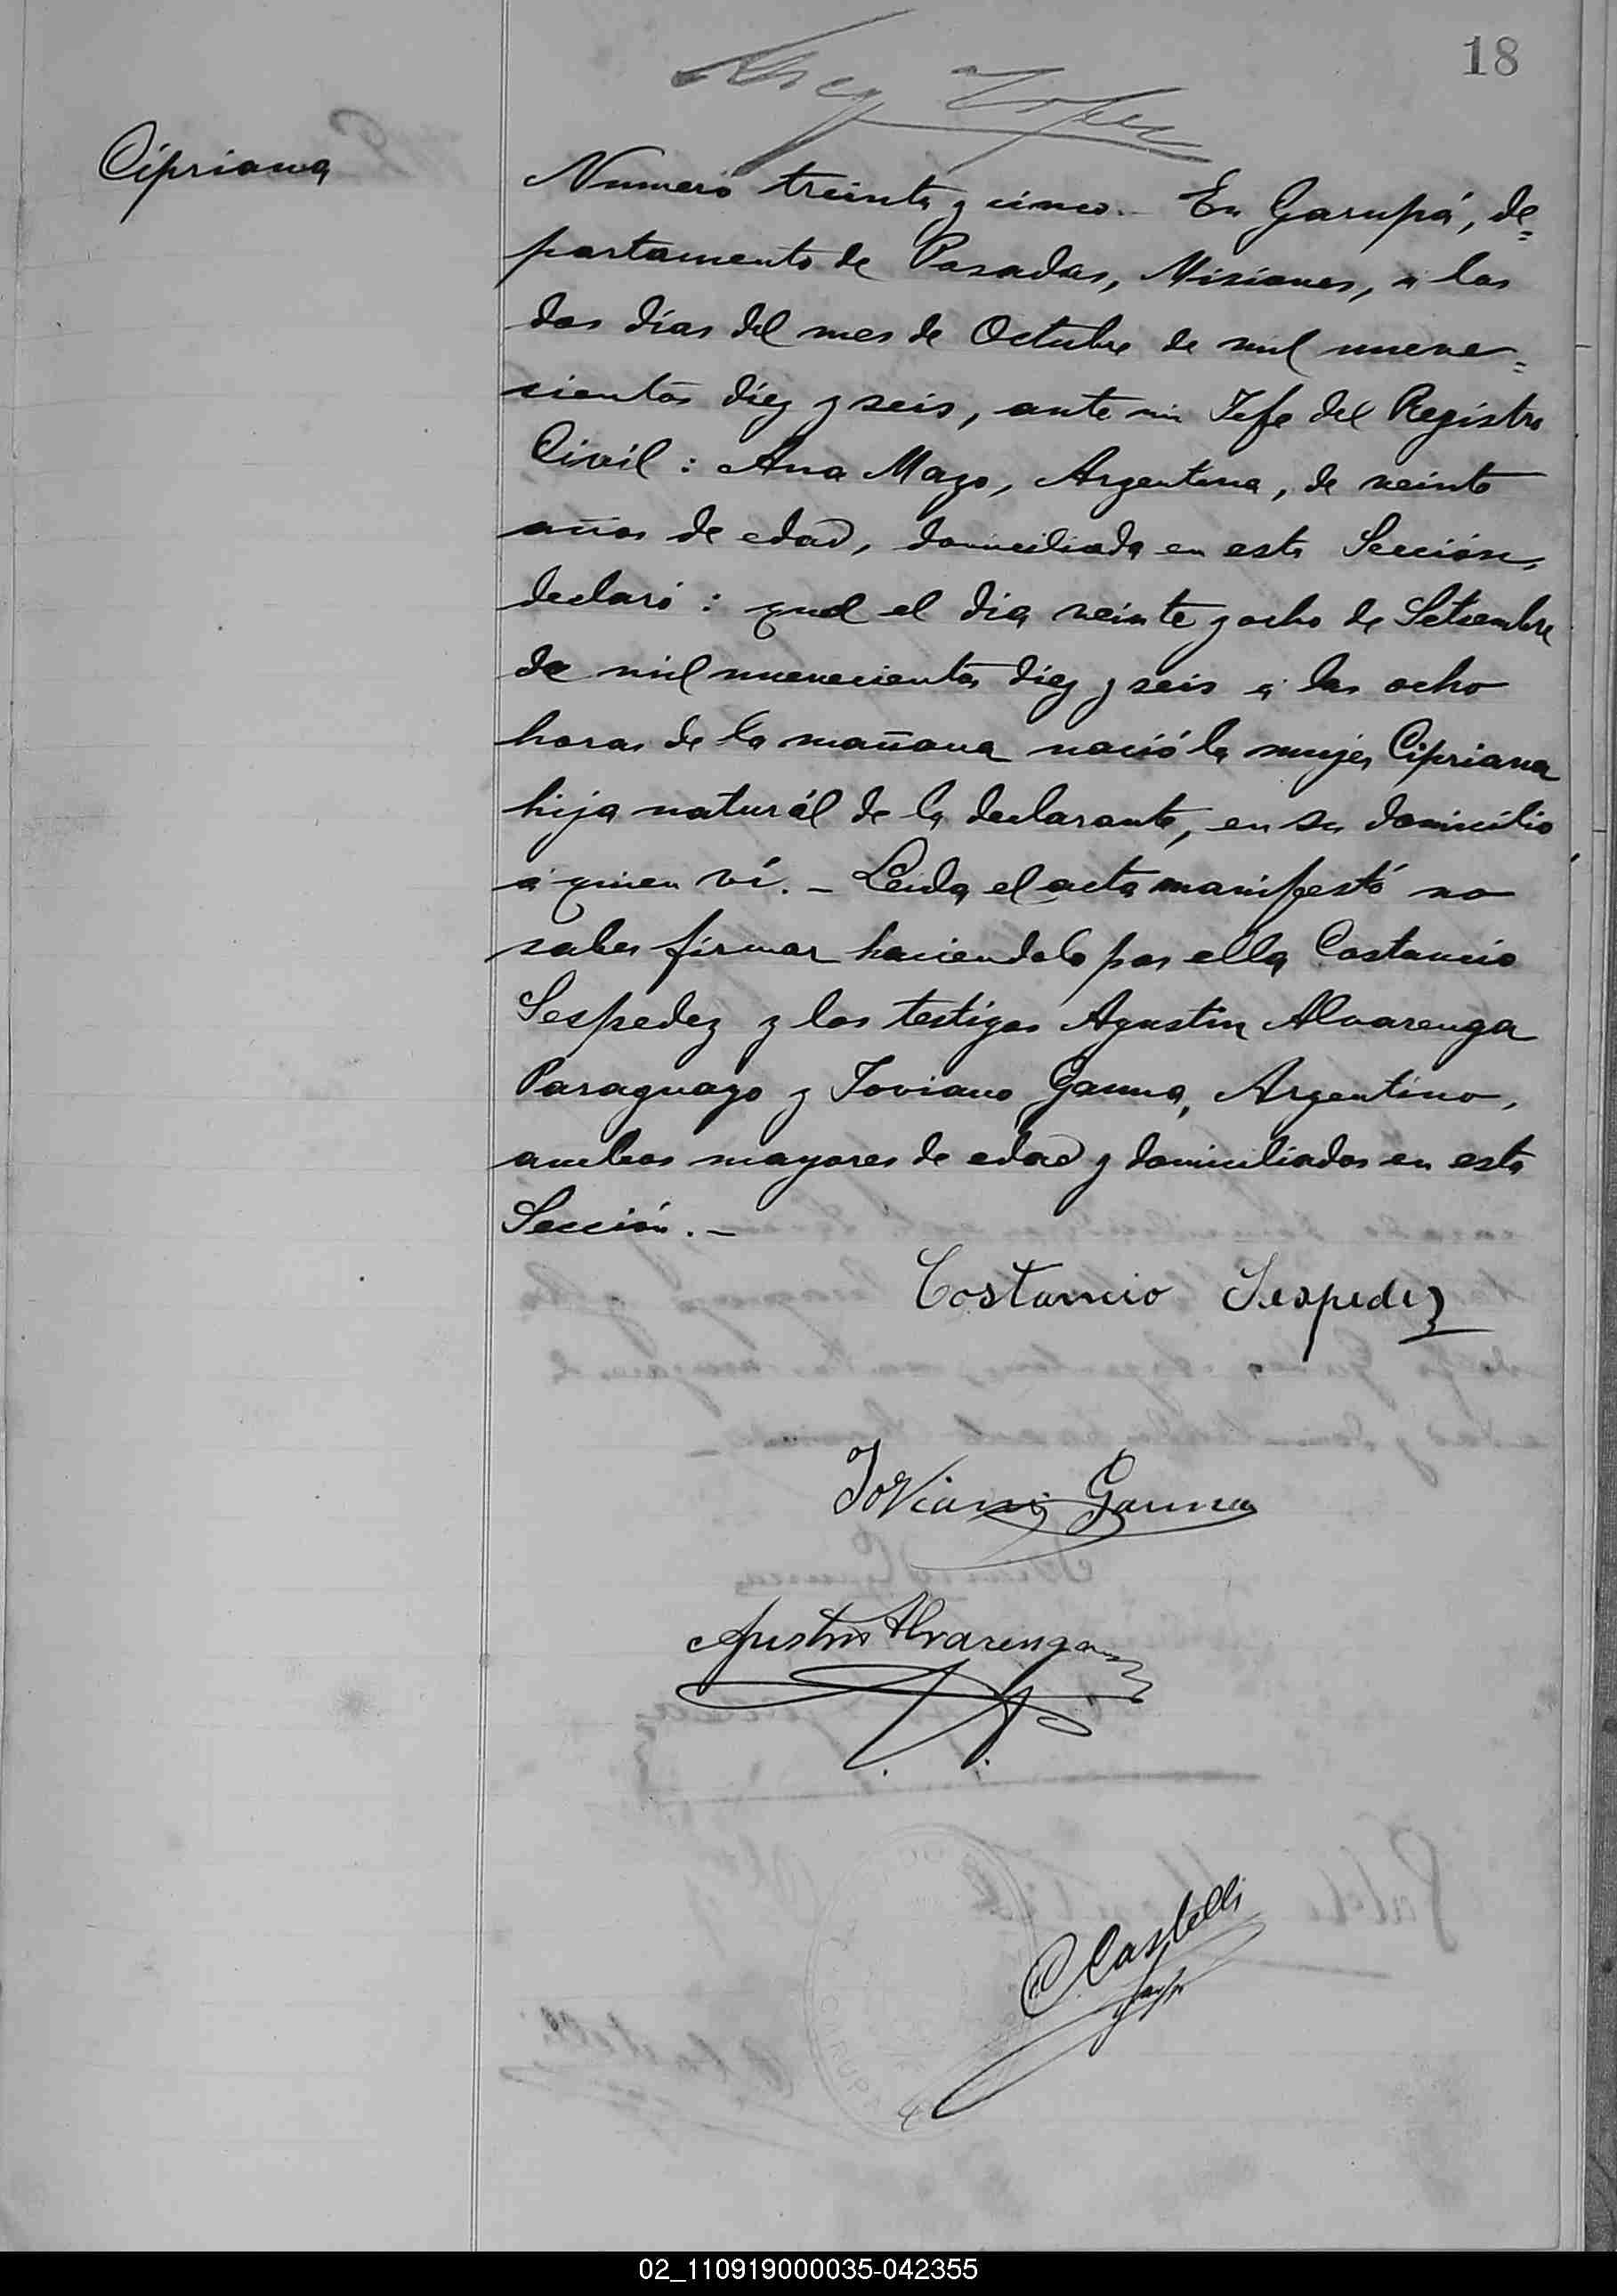 18
Cipriana
Numero treinta y cinco.- En Garupá, de=
partamento de Posadas, Misiones, a los
dos días del mes de Octubre de mil nueve=
cientos diez y seis, ante mi Jefe del Registro
Civil: Ana Mazo, Argentina, de veinte
años de edad, domiciliada en esta Sección,
declaró: qued el dia veinte y ocho de Setiembre
de mil nuevecientos diez y seis a las ocho
horas de la mañana nació la mujer Cipriana
hija naturál de la declarante, en su domicilio
a quien ví.- Leida el acta manifestó no
saber firmar haciendolo por ella Costancio
Sespedez y los testigos Agustin Alvarenga
Paraguayo y Joviano Gauna, Argentino,
ambos mayores de edad y domiciliados en esta
Sección.-
Costancio Sespedez
Joviano Gauna
Agustin Alvarenga
C. Castelli
02_110919000035-042355